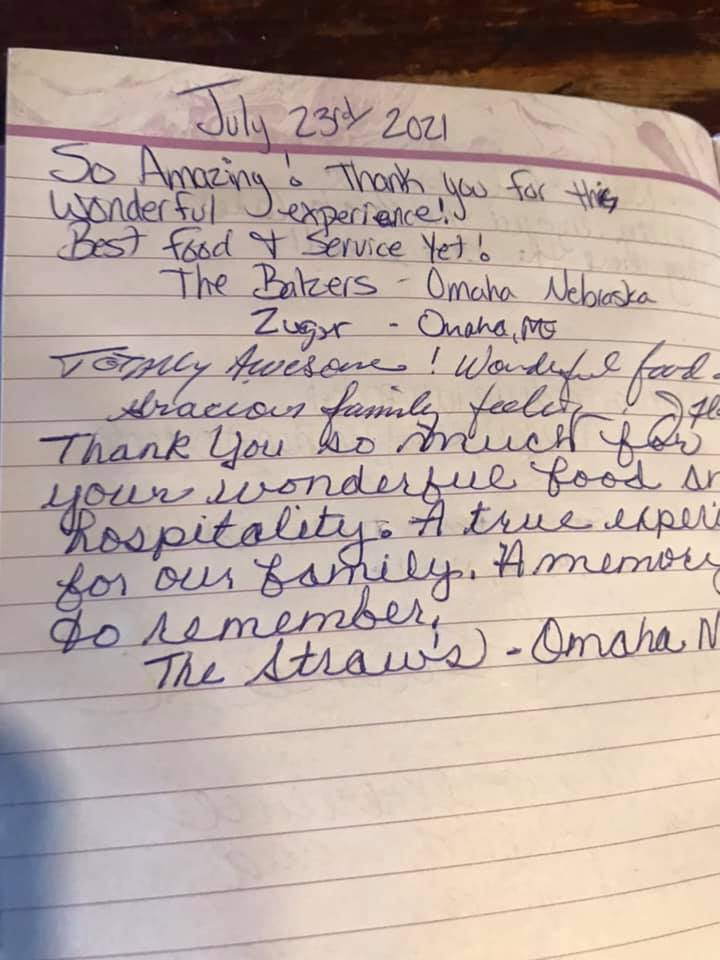 July 23rd 2021
So Amazing! Thank you for this
Wonderful experience!
Best food & Service Yet!
The Bakers - Omaha Nebraska
- Omaha, 
Totally Awesome! Wonderful food
Gracious family feeling!
Thank You so much for
your wonderful food an
hospitality. A true experi
for our family. A memory
to remember.
The Straw's - Omaha N